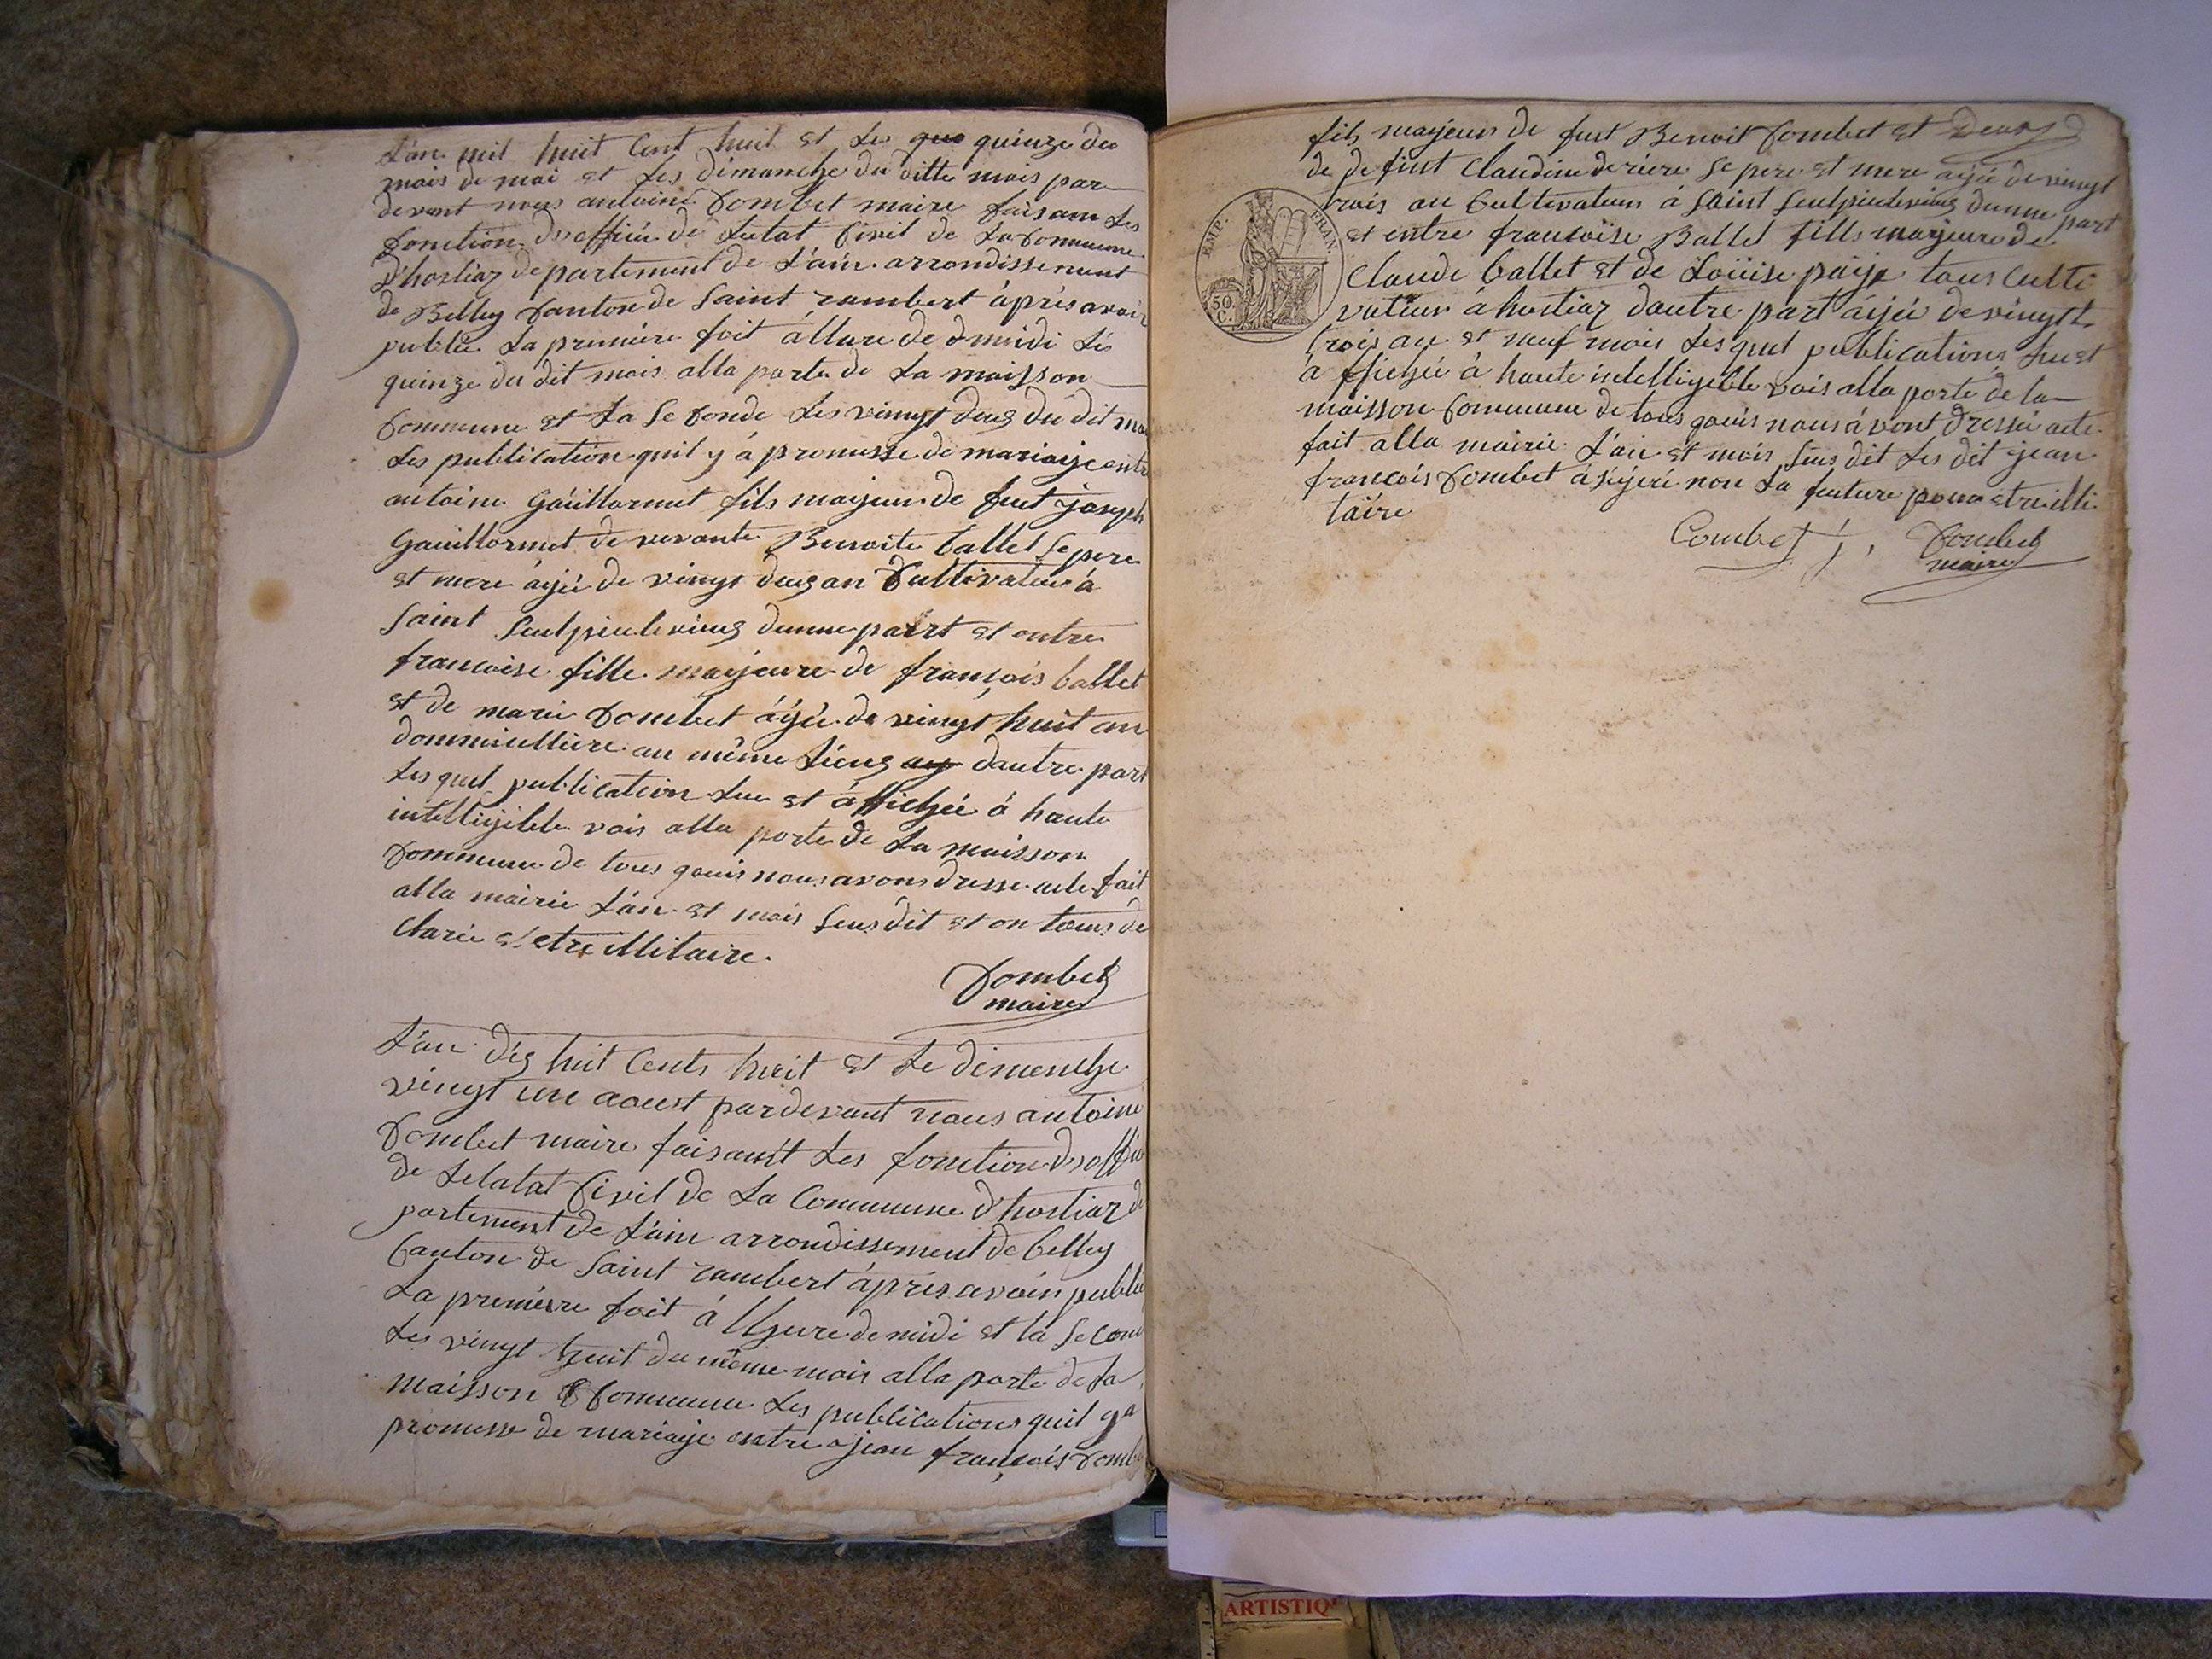 L'an mil huit Cent huit et les quo quinze du
mois de mai et les dimanche du ditte mois par
devant nous antoine Combet maire faisam les
fonction d'officié de letat Civil de la Commune
d'hostiaz departement de l'ain arrondissement
de Belley Canton de Saint rambert àprès avoir
publiée la première foit állure de dmidi lés
quinze du dit mois alla porte de la maisson
Commune et la seconde les vingt deux du dit moi
les publication quil y à promesse de mariaije entre
antoine Gauillarmet fils majeur de feut joseph
Gauillarmet de vevante Benoite ballet se pere
et mere âjée de vingt deux an Cultivateur à
Saint Seulpicelevieux dunne part et entre
francoise fille majeure de françois ballet
et de marie Combet âjée de vingt huit an
dommiciellière au même lieug ay dautre part
les quel publication lue et áffichée à haute
intelligible vois alla porte de la maisson
Commune de tous quois nous avons dresse acte fait
alla mairie l'an et mois Sus dit et on tous dé
clarée etre illitaire.
Combet
maire
L'an dix huit Cents huit et le dimenche
vingt un aoust pardevant nous antoine
Combet maire faisant les fonction d'offici
de letatat Civil de la Commune d'hostiaz dé
partement de l'ain arrondissement de belley
Canton de Saint rambert áprès avoir publié
la premiere foit à lheure de midi et la secon
les vingt huit du même mois alla porte de la
maisson Commune les publications quil y a
promesse de mariaije entre jean françois Comb
fils majeur de fut Benoit Combet et
de defunt Claudine deriere se pere et mere ajée de vingt
trois an Cultivateur à Saint Seulpicelevieux dunne part
et entre francoise Ballet fille majeure de
Claude ballet et de Loüise paije tous Culti
vateur à hostiaz dautre part áijée de vingt
trois an et neuf mois les quel publications lue et
á ffichée à haute intelligible vois alla porte de la
maisson Commune de tous quois nous ávont dressée acte
fait alla mairie l'an et mois Sus dit les dit jean
francois Combet à sijéré non la feuture pour etre illi
taire
Combet j. Combet
maire
TEMP. FRAN
50
C.
ARTISTIQ